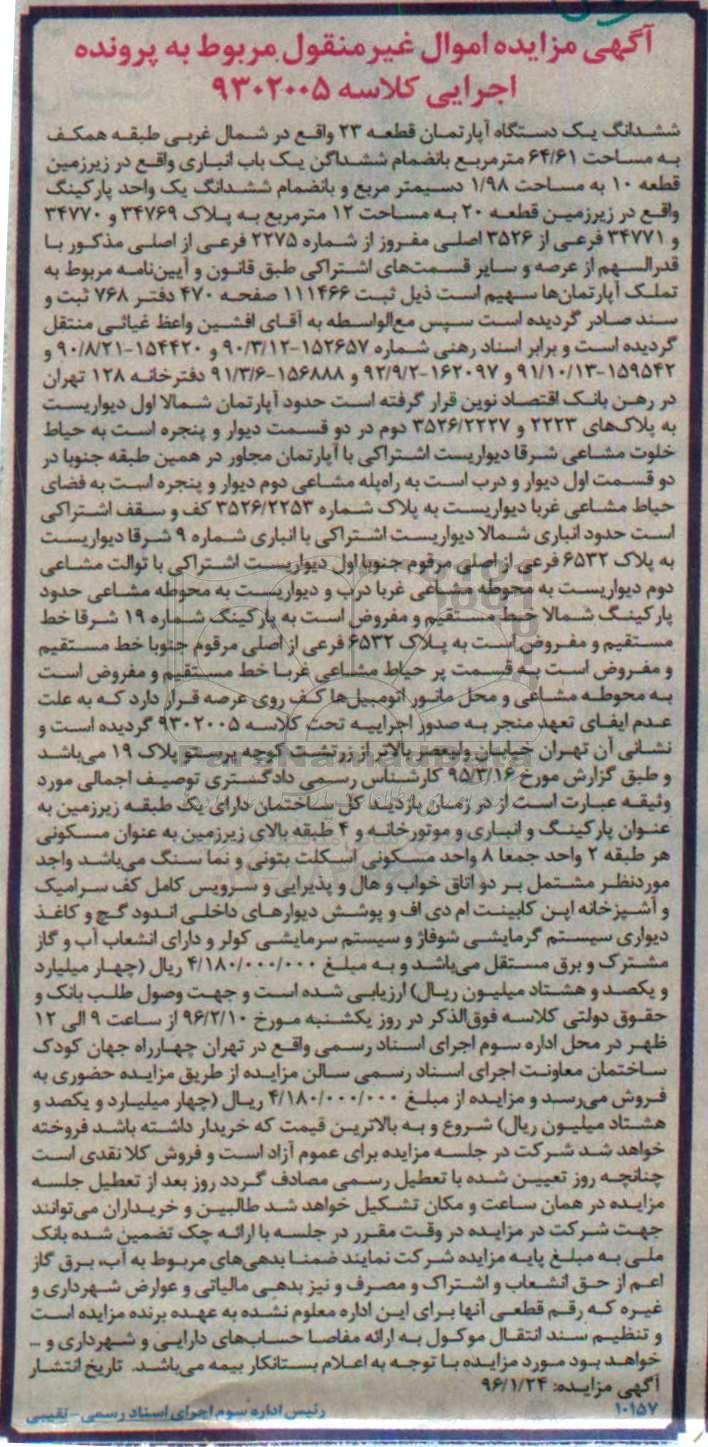 آگهی مزایده اموال غیرمنقول مربوط به پرونده
اجرایی کلاسه ۹۳۰۲۰۰۵
ششدانگ یک دستگاه آپارتمان قطعه ۲۳ واقع در شمال غربی طبقه همکف
به مساحت ۶۴/۶۱ مترمربع بانضمام ششداگن یک باب انباری واقع در زیرزمین
قطعه ۱۰ به مساحت ۱/۹۸ دسیمتر مربع و بانضمام ششدانگ یک واحد پارکینگ
واقع در زیرزمین قطعه ۲۰ به مساحت ۱۲ مترمربع به پلاک ۳۴۷۶۹ و ۳۴۷۷۰
و ۳۴۷۷۱ فرعی از ۳۵۲۶ اصلی مفروز از شماره ۲۲۷۵ فرعی از اصلی مذکور با
قدرالسهم از عرصه و سایر قسمت‌های اشتراکی طبق قانون و آیین‌نامه مربوط به
تملک آپارتمان‌ها سهیم است ذیل ثبت ۱۱۱۴۶۶ صفحه ۴۷۰ دفتر ۷۶۸ ثبت و
سند صادر گردیده است سپس مع‌الواسطه به آقای افشین واعظ غیاثی منتقل
گردیده است و برابر اسناد رهنی شماره ۱۵۲۶۵۷-۹۰/۳/۱۲ و ۱۵۴۴۲۰-۹۰/۸/۲۱ و
۱۵۹۵۴۲-۹۱/۱۰/۱۳ و ۱۶۲۰۹۷-۹۲/۹/۲ و ۱۵۶۸۸۸-۹۱/۳/۶ دفترخانه ۱۲۸ تهران
در رهن بانک اقتصاد نوین قرار گرفته است حدود آپارتمان شمالا اول دیواریست
به پلاک‌های ۲۲۲۳ و ۳۵۲۶/۲۲۲۷ دوم در دو قسمت دیوار و پنجره است به حیاط
خلوت مشاعی شرقا دیواریست اشتراکی با آپارتمان مجاور در همین طبقه جنوبا در
دو قسمت اول دیوار و درب است به راه‌پله مشاعی دوم دیوار و پنجره است به فضای
حیاط مشاعی غربا دیواریست به پلاک شماره ۳۵۲۶/۲۲۵۳ کف و سقف اشتراکی
است حدود انباری شمالا دیواریست اشتراکی با انباری شماره ۹ شرقا دیواریست
به پلاک ۶۵۳۲ فرعی از اصلی مرقوم جنوبا اول دیواریست اشتراکی با توالت مشاعی
دوم دیواریست به محوطه مشاعی غربا درب و دیواریست به محوطه مشاعی حدود
پارکینگ شمالا خط مستقیم و مفروض است به پارکینگ شماره ۱۹ شرقا خط
مستقیم و مفروض است به پلاک ۶۵۳۲ فرعی از اصلی مرقوم جنوبا خط مستقیم
و مفروض است به قسمت پر حیاط مشاعی غربا خط مستقیم و مفروض است
به محوطه مشاعی و محل مانور اتومبیل‌ها کف روی عرصه قرار دارد که به علت
عدم ایفای تعهد منجر به صدور اجراییه تحت کلاسه ۹۳۰۲۰۰۵ گردیده است و
نشانی آن تهران خیابان ولیعصر بالاتر از زرتشت کوچه پرستو پلاک ۱۹ می‌باشد
و طبق گزارش مورخ ۹۵/۳/۱۶ کارشناس رسمی دادگستری توصیف اجمالی مورد
وثیقه عبارت است از در زمان بازدید کل ساختمان دارای یک طبقه زیرزمین به
عنوان پارکینگ و انباری و موتورخانه و ۴ طبقه بالای زیرزمین به عنوان مسکونی
هر طبقه ۲ واحد جمعا ۸ واحد مسکونی اسکلت بتونی و نما سنگ می‌باشد واحد
موردنظر مشتمل بر دو اتاق خواب و هال و پذیرایی و سرویس کامل کف سرامیک
و آشپزخانه اپن کابینت ام دی اف و پوشش دیوارهای داخلی اندود گچ و کاغذ
دیواری سیستم گرمایشی شوفاژ و سیستم سرمایشی کولر و دارای انشعاب آب و گاز
مشترک و برق مستقل می‌باشد و به مبلغ ۴/۱۸۰/۰۰۰/۰۰۰ ریال (چهار میلیارد
و یکصد و هشتاد میلیون ریال) ارزیابی شده است و جهت وصول طلب بانک و
حقوق دولتی کلاسه فوق‌الذکر در روز یکشنبه مورخ ۹۶/۲/۱۰ از ساعت ۹ الی ۱۲
ظهر در محل اداره سوم اجرای اسناد رسمی واقع در تهران چهارراه جهان کودک
ساختمان معاونت اجرای اسناد رسمی سالن مزایده از طریق مزایده حضوری به
فروش می‌رسد و مزایده از مبلغ ۴/۱۸۰/۰۰۰/۰۰۰ ریال (چهار میلیارد و یکصد و
هشتاد میلیون ریال) شروع و به بالاترین قیمت که خریدار داشته باشد فروخته
خواهد شد شرکت در جلسه مزایده برای عموم آزاد است و فروش کلا نقدی است
چنانچه روز تعیین شده با تعطیل رسمی مصادف گردد روز بعد از تعطیل جلسه
مزایده در همان ساعت و مکان تشکیل خواهد شد طالبین و خریداران می‌توانند
جهت شرکت در مزایده در وقت مقرر در جلسه با ارائه چک تضمین شده بانک
ملی به مبلغ پایه مزایده شرکت نمایند ضمنا بدهی‌های مربوط به آب، برق گاز
اعم از حق انشعاب و اشتراک و مصرف و نیز بدهی مالیاتی و عوارض شهرداری و
غیره که رقم قطعی آنها برای این اداره معلوم نشده به عهده برنده مزایده است
و تنظیم سند انتقال موکول به ارائه مفاصا حساب‌های دارایی و شهرداری و ...
خواهد بود مورد مزایده با توجه به اعلام بستانکار بیمه می‌باشد. تاریخ انتشار
آگهی مزایده: ۹۶/۱/۲۴
۱۰۱۵۷ رئیس اداره سوم اجرای اسناد رسمی - نقیبی